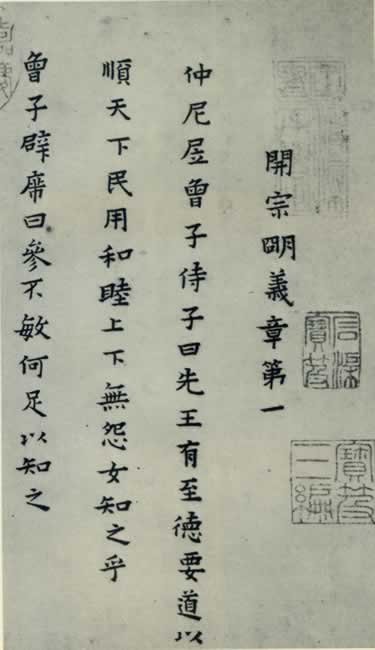 開宗明義章第一
仲尼居曾子侍子曰先王有至德要道以
順天下民用和睦上下無怨女知之乎
曾子辟席曰參不敏何足以知之
石渠寶笈
寶笈三編